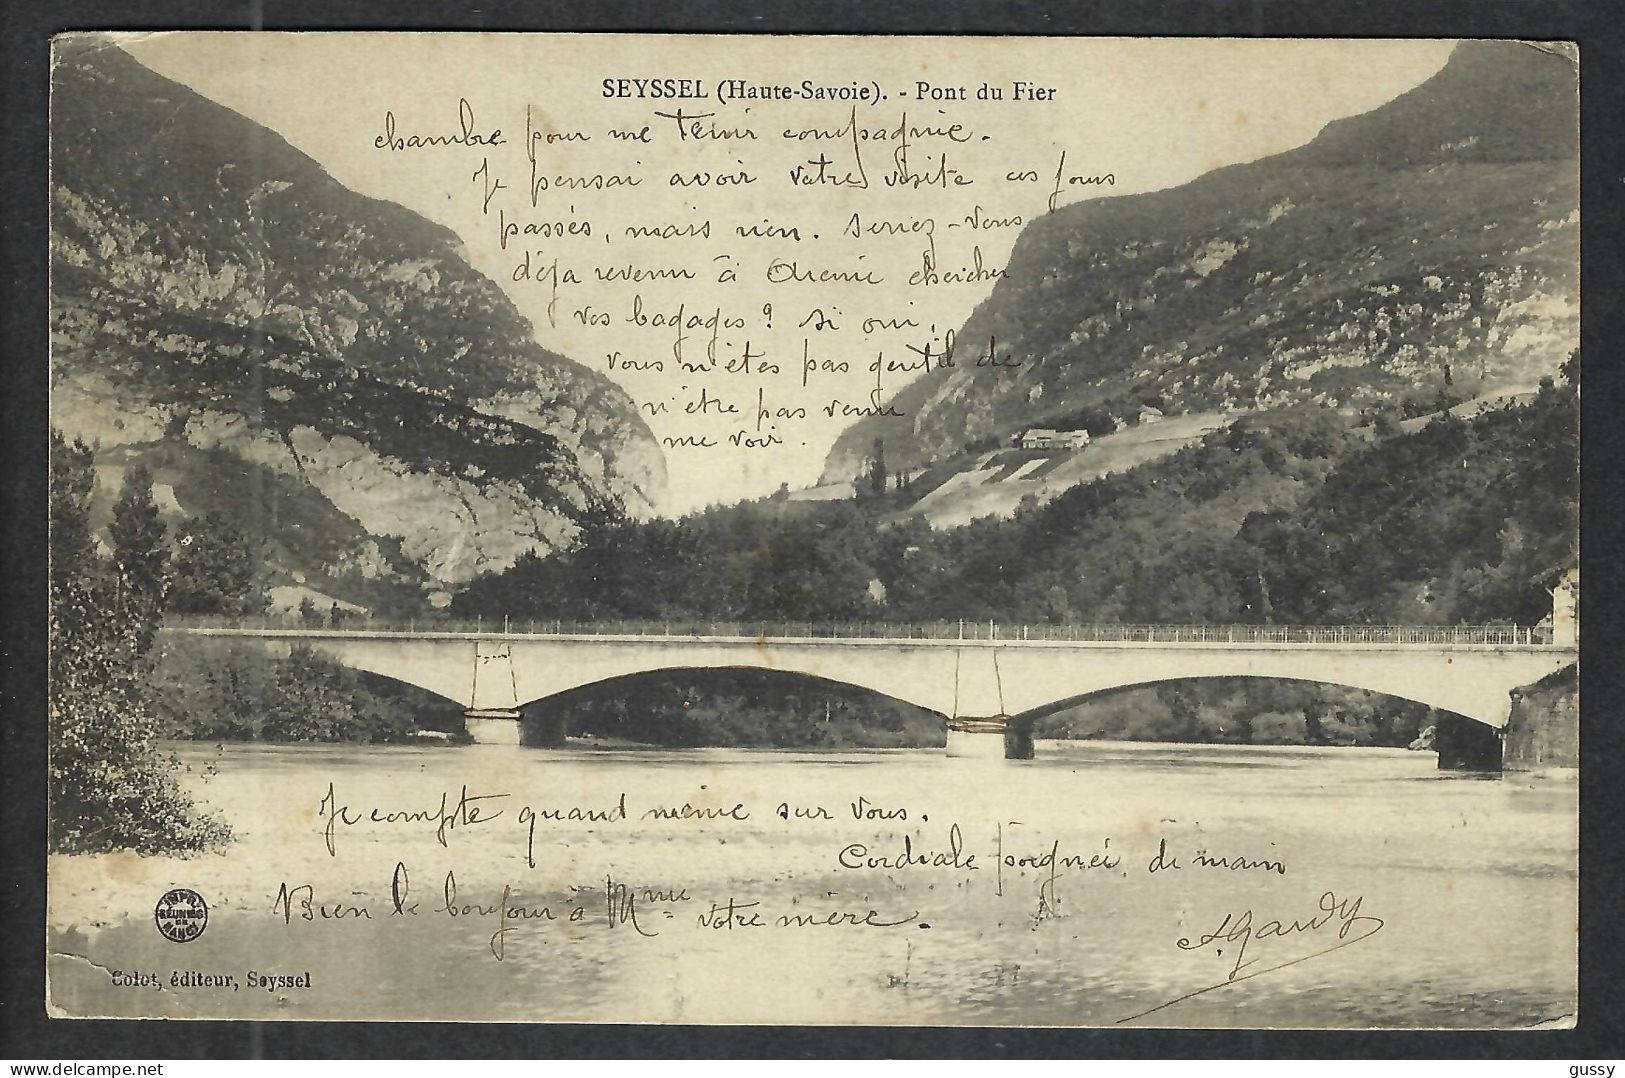 SEYSSEL (Haute-Savoie). - Pont du Fier
chambre pour me tenir compagnie.
Je pensai avoir votre visite ces jours
passés, mais rien. Seriez-vous
déja revenu à chercher
vos bagages ? Si oui,
vous n'êtes pas gentil de
n'être pas venu
me voir.
Je compte quand même sur vous.
Cordiale poignée de main
Bien le bonjour à Mme votre mère.
IMPR. RÉUNIES DE NANCY
Colot, éditeur, Seyssel
gussy